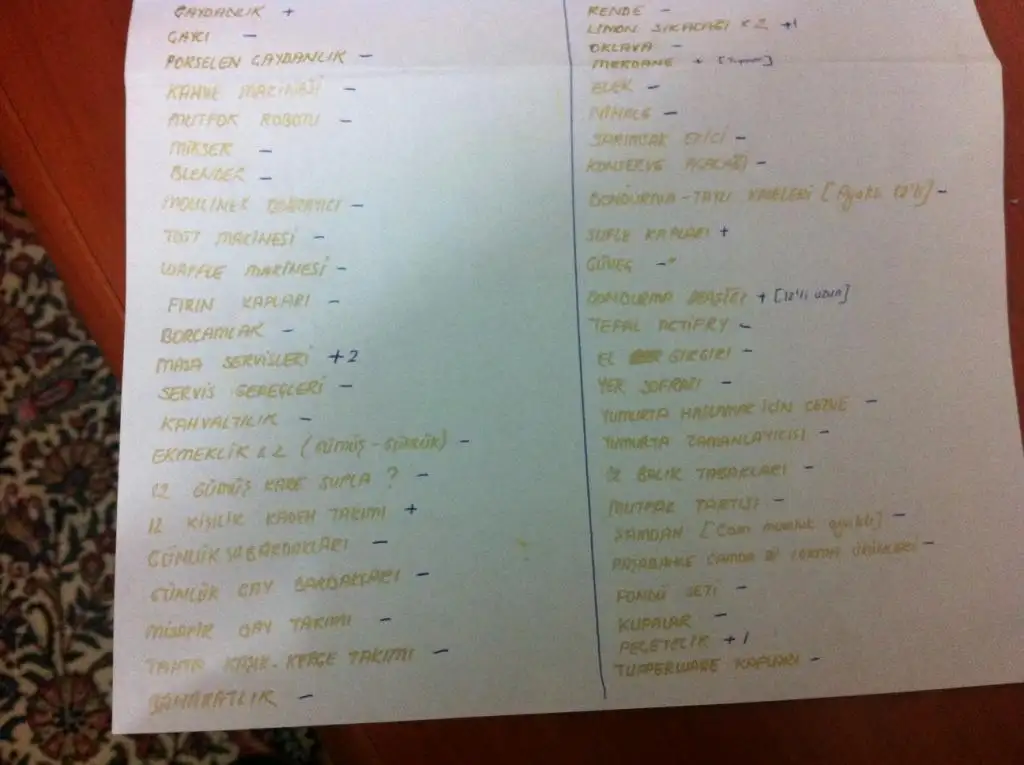 ÇAYDANLIK +
ÇAYCI -
PORSELEN ÇAYDANLIK -
KAHVE MAKİNESİ -
MUTFAK ROBOTU -
MİKSER -
BLENDER -
MOULINEX DOĞRAYICI -
TOST MAKİNESİ -
WAFFLE MAKİNESİ -
FIRIN KAPLARI -
BORCAMLAR -
MASA SERVİSLERİ +2
SERVİS GEREÇLERİ -
KAHVALTILIK -
EKMEKLİK x2 (GÜMÜŞ-GÜNLÜK) -
12 GÜMÜŞ KARE SUPLA ? -
12 KİŞİLİK KADEH TAKIMI +
GÜNLÜK SU BARDAKLARI -
GÜNLÜK ÇAY BARDAKLARI -
MİSAFİR ÇAY TAKIMI -
TAHTA KAŞIK-KEPÇE TAKIMI -
BAHARATLIK -
RENDE -
LİMON SIKACAĞI x2 +1
OKLAVA -
MERDANE +
ELEK -
NİHALE -
SARIMSAK EZİCİ -
KONSERVE AÇACAĞI -
DONDURMA-TATLI KASELERİ [Ayaklı 12'li] -
SUFLE KAPLARI +
GÜVEÇ -"
DONDURMA KAŞIĞI + [12'li uzun]
TEFAL ACTIFRY -
EL GIRGIRI -
YER SOFRASI -
YUMURTA HAŞLAMAK İÇİN CEZVE -
YUMURTA ZAMANLAYICISI -
12 BALIK TABAKLARI -
MUTFAK TARTISI -
ŞAMDAN [Cam mumluk ayaklı] -
PAŞABAHÇE CAMDA ÜRÜNLERİ -
FONDÜ SETİ -
KUPALAR -
PEÇETELİK +1
TUPPERWARE KAPLARI -